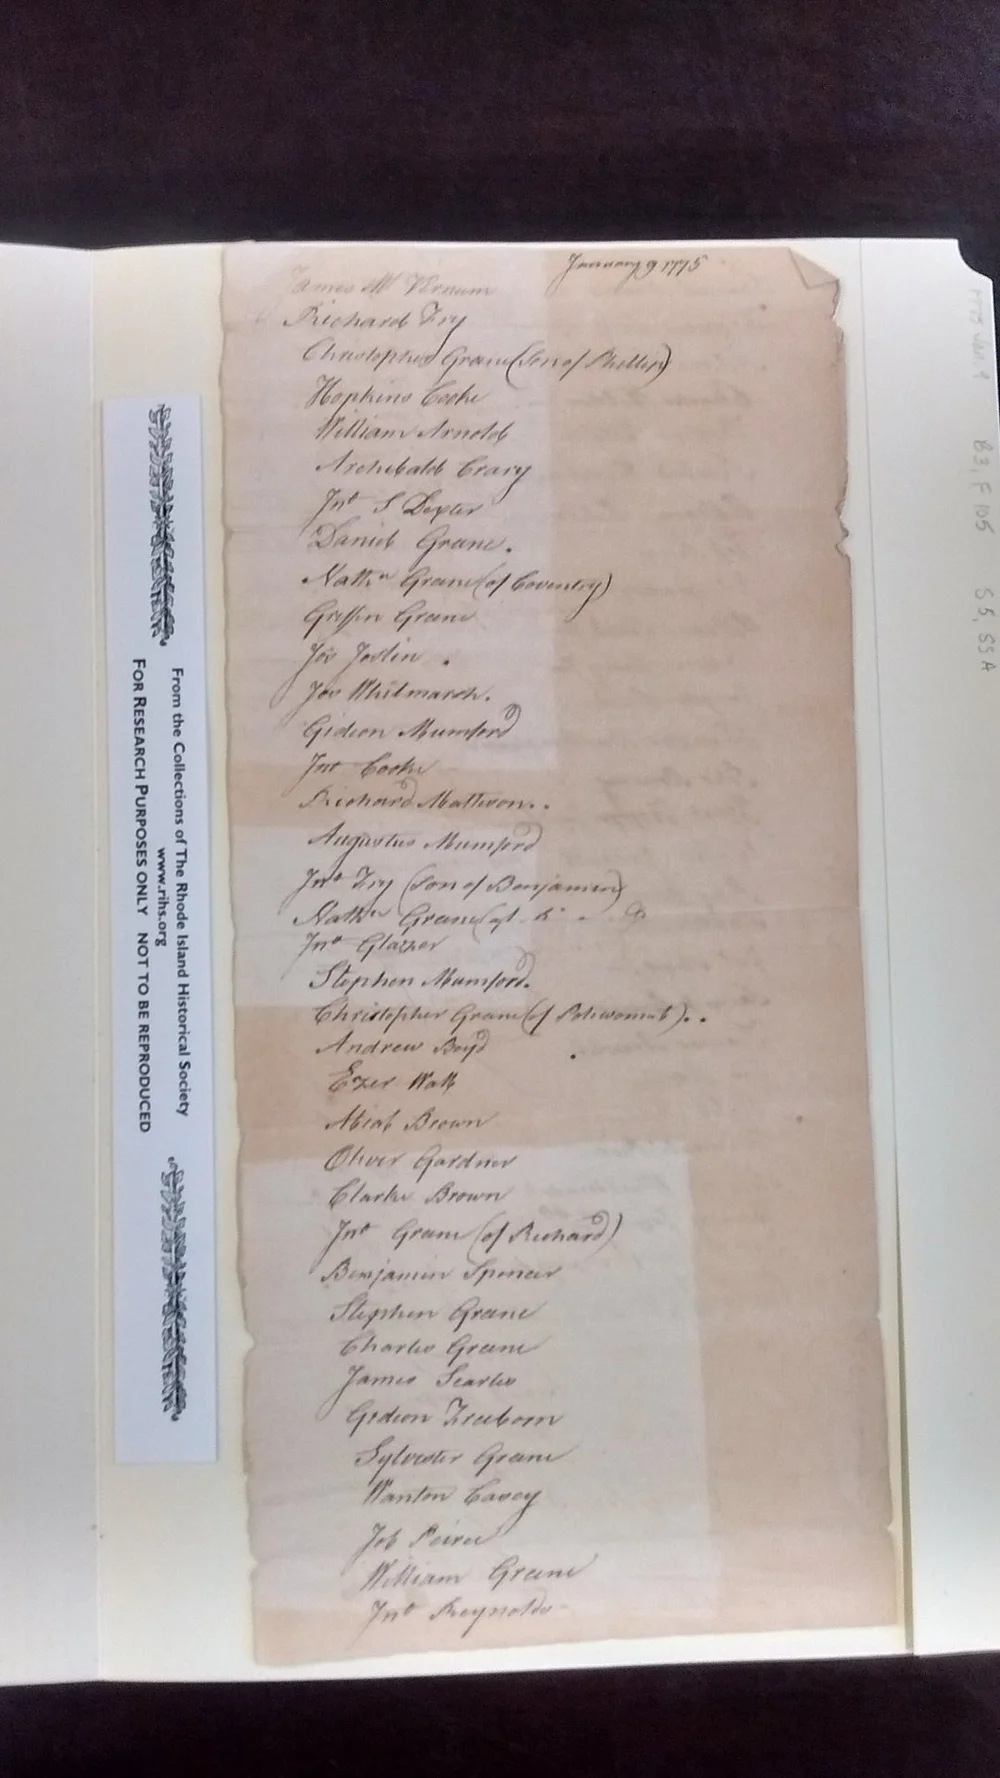 January 9 1775
James M Varnum
Richard Fry
Christopher Greene (Son of Phillip)
Hopkins Cooke
William Arnold
Archibald Crary
Jnº S Dexter
Daniel Greene.
Nathⁿ Greene (of Coventry)
Griffin Greene
Jos Joslin .
Jos Whitmarsh.
Gideon Mumford
Jnº Cooke
Richard Mattison..
Augustus Mumford
Jnº Fry (Son of Benjamin)
Nathⁿ Greene
Jnº Glazier
Stephen Mumford.
Christopher Greene (of Potiwomut)..
Andrew Boyd
Ezer Wall
Abial Brown
Oliver Gardner
Clarke Brown
Jnº Greene (of Richard)
Benjamin Spencer
Stephen Greene
Charles Greene
James Searles
Gideon Freeborn
Sylvester Greene
Wanton Casey
Job Peirce
William Greene
Jnº Reynolds
From the Collections of The Rhode Island Historical Society
www.rihs.org
FOR RESEARCH PURPOSES ONLY NOT TO BE REPRODUCED
B3, F 105 S5, SSA